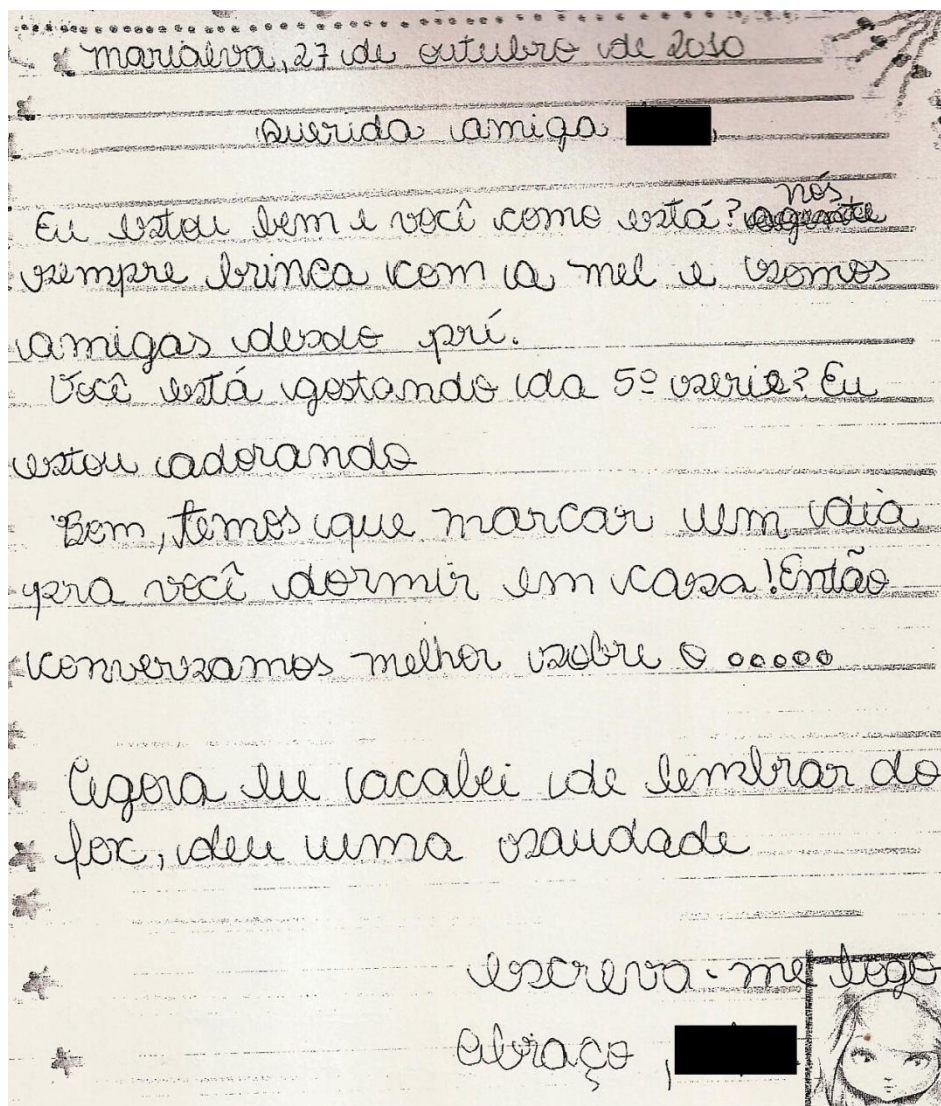 marialva, 27 de outubro de 2010
Querida amiga ,
nós
Eu estou bem e você como está? agente
sempre brinca com a mel e somos
amigas desdo pré.
Você está gostando da 5º serie? Eu
estou adorando
Bom, temos que marcar um dia
pra você dormir em casa! Então
conversamos melhor sobre o ooooo
Agora eu acabei de lembrar do
fox, deu uma saudade
escreva-me logo
Abraço ,